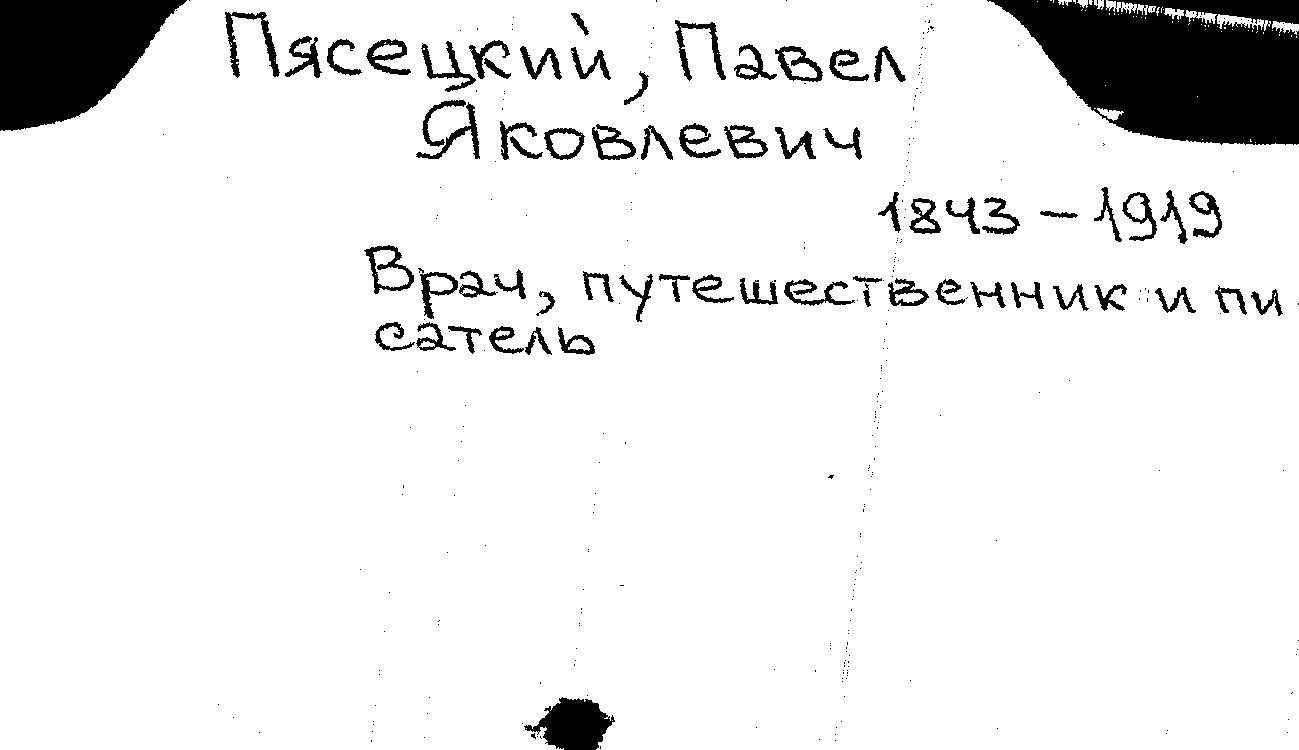 Пясецкий, Павел
Яковлевич
1843 – 1919
Врач, путешественник и пи-
сатель